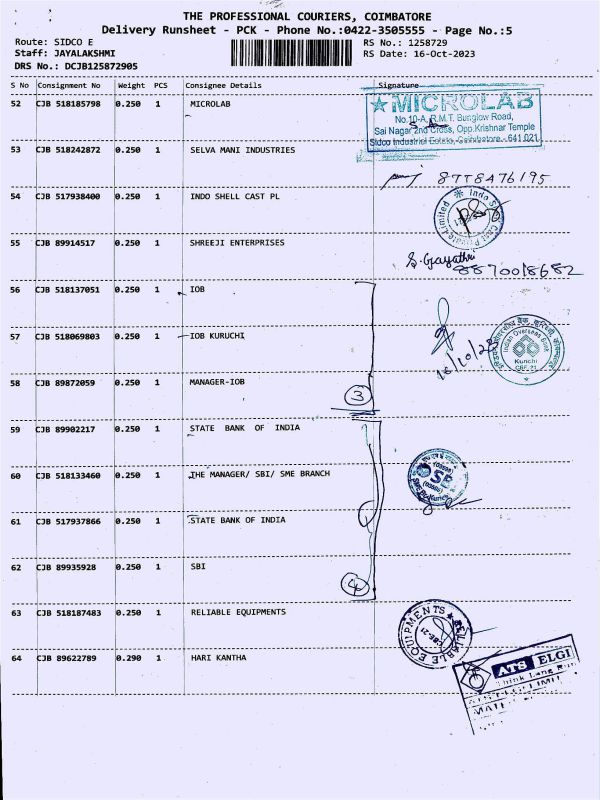 THE PROFESSIONAL COURIERS, COIMBATORE
Delivery Runsheet - PCK - Phone No.:0422-3505555 - Page No.:5
Route: SIDCO E
RS No.: 1258729
Staff: JAYALAKSHMI
RS Date: 16-Oct-2023
DRS No.: DCJB125872905
S No Consignment No Weight PCS Consignee Details Signature
52 CJB 518185798 0.250 1 MICROLAB
MICROLAB
No.10-A, R.M.T. Bunglow Road,
Sai Nagar 2nd Cross, Opp.Krishnar Temple
Sidco Industrial Estate, Coimbatore - 641 021
53 CJB 518242872 0.250 1 SELVA MANI INDUSTRIES
8778476195
54 CJB 517938400 0.250 1 INDO SHELL CAST PL
Indo Shell Cast Private Limited
55 CJB 89914517 0.250 1 SHREEJI ENTERPRISES
S. Gayathri
8870018682
56 CJB 518137051 0.250 1 IOB
57 CJB 518069803 0.250 1 IOB KURUCHI
16/10/23
Indian Overseas Bank
Kurichi
CBE-21
58 CJB 89872059 0.250 1 MANAGER-IOB
3
59 CJB 89902217 0.250 1 STATE BANK OF INDIA
60 CJB 518133460 0.250 1 THE MANAGER/ SBI/ SME BRANCH
SBI
61 CJB 517937866 0.250 1 STATE BANK OF INDIA
62 CJB 89935928 0.250 1 SBI
4
63 CJB 518187483 0.250 1 RELIABLE EQUIPMENTS
RELIABLE EQUIPMENTS
CBE-21
64 CJB 89622789 0.290 1 HARI KANTHA
ATS ELGI